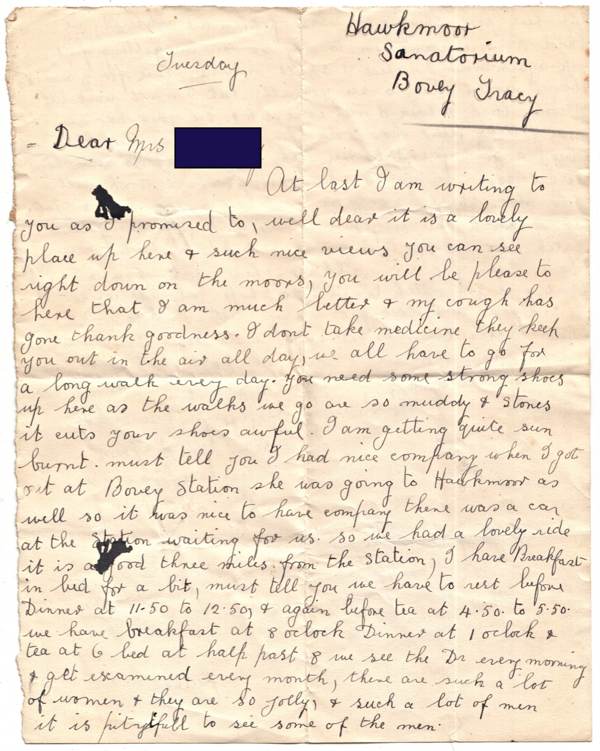 Hawkmoor
Sanatorium
Bovey Tracy
Tuesday
Dear Mrs
At last I am writing to
you as I promised to, well dear it is a lovely
place up here & such nice views you can see
right down on the moors, you will be please to
here that I am much better & my cough has
gone thank goodness. I dont take medicine they keep
you out in the air all day, we all have to go for
a long walk every day. you need some strong shoes
up here as the walks we go are so muddy & stones
it cuts your shoes awful. I am getting quite sun
burnt. must tell you I had nice company when I got
out at Bovey Station she was going to Hawkmoor as
well so it was nice to have company there was a car
at the Station waiting for us. so we had a lovely ride
it is a good three miles from the Station, I have Breakfast
in bed for a bit, must tell you we have to rest before
Dinner at 11.50 to 12.50, & again before tea at 4.50. to 5.50.
we have breakfast at 8 oclock Dinner at 1 oclock &
tea at 6 bed at half past 8 we see the Dr every morning
& get examined every month, there are such a lot
of women & they are so jolly, & such a lot of men
it is pityfull to see some of the men.